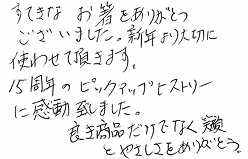 すてきな お箸をありがとう
ございました。新年より大切に
使わせて頂きます。
15周年のピックアップヒストリー
に感動致しました。
良き商品だけでなく
とやさしさをありがとう。